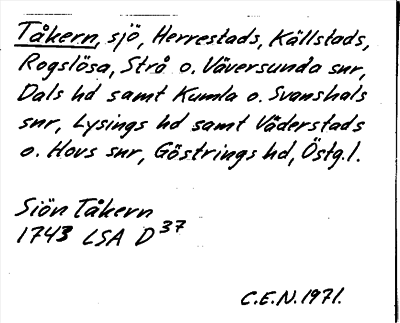 Tåkern, sjö, Herrestads, Källstads,
Rogslösa, Strå o. Väversunda snr,
Dals hd samt Kumla o. Svanshals
snr, Lysings hd samt Väderstads
o. Hovs snr, Göstrings hd, Östg.l.
Siön Tåkern
1743 LSA D 37
C.E.N. 1971.